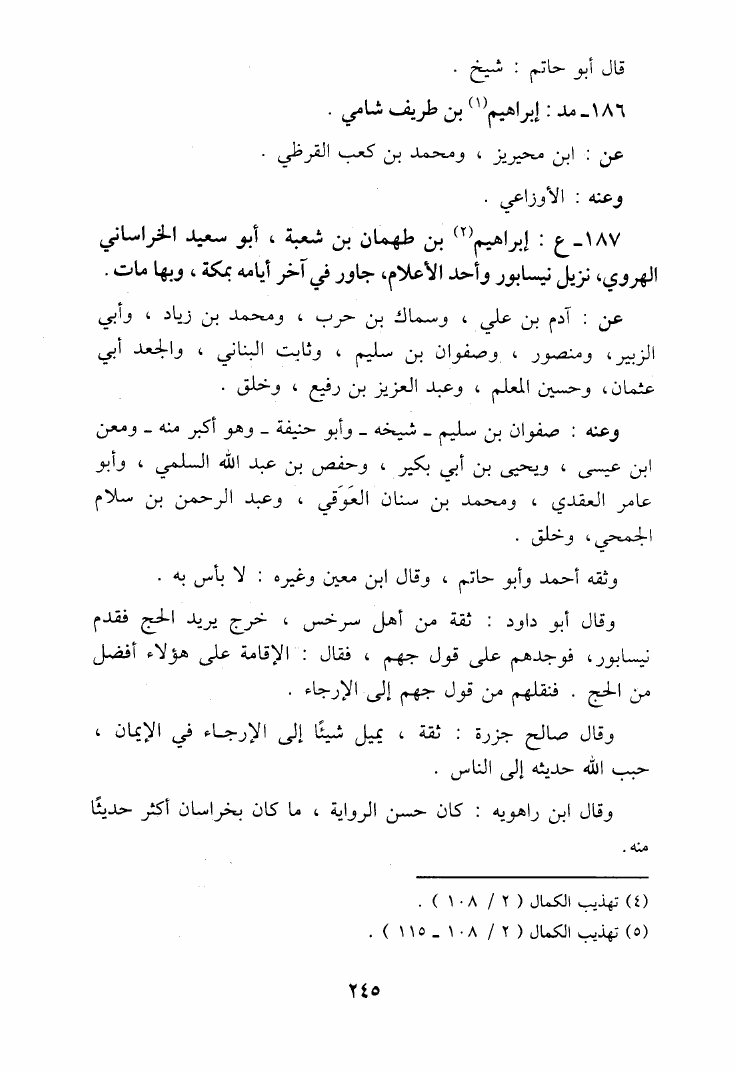 قال أبو حاتم : شيخ .
١٨٦ـ مد : إبراهيم(١) بن طريف شامي .
عن : ابن محيريز ، ومحمد بن كعب القرظي .
وعنه : الأوزاعي .
١٨٧ـ ع : إبراهيم(٢) بن طهمان بن شعبة ، أبو سعيد الخراساني
الهروي، نزيل نيسابور وأحد الأعلام، جاور في آخر أيامه بمكة ، وبها مات .
عن : آدم بن علي ، وسماك بن حرب ، ومحمد بن زياد ، وأبي
الزبير، ومنصور ، وصفوان بن سليم ، وثابت البناني ، والجعد أبي
عثمان، وحسين المعلم ، وعبد العزيز بن رفيع ، وخلق .
وعنه : صفوان بن سليم ـ شيخه ـ وأبو حنيفة ـ وهو أكبر منه ـ ومعن
ابن عيسى ، ويحيى بن أبي بكير ، وحفص بن عبد الله السلمي ، وأبو
عامر العقدي ، ومحمد بن سنان العَوَقي ، وعبد الرحمن بن سلام
الجمحي، وخلق .
وثقه أحمد وأبو حاتم ، وقال ابن معين وغيره : لا بأس به .
وقال أبو داود : ثقة من أهل سرخس ، خرج يريد الحج فقدم
نيسابور، فوجدهم على قول جهم ، فقال : الإقامة على هؤلاء أفضل
من الحج . فنقلهم من قول جهم إلى الإرجاء .
وقال صالح جزرة : ثقة ، يميل شيئًا إلى الإرجاء في الإيمان ،
حبب الله حديثه إلى الناس .
وقال ابن راهويه : كان حسن الرواية ، ما كان بخراسان أكثر حديثًا
منه .
(٤) تهذيب الكمال ( ٢ / ١٠٨ ) .
(٥) تهذيب الكمال ( ٢ / ١٠٨ ـ ١١٥ ) .
٢٤٥